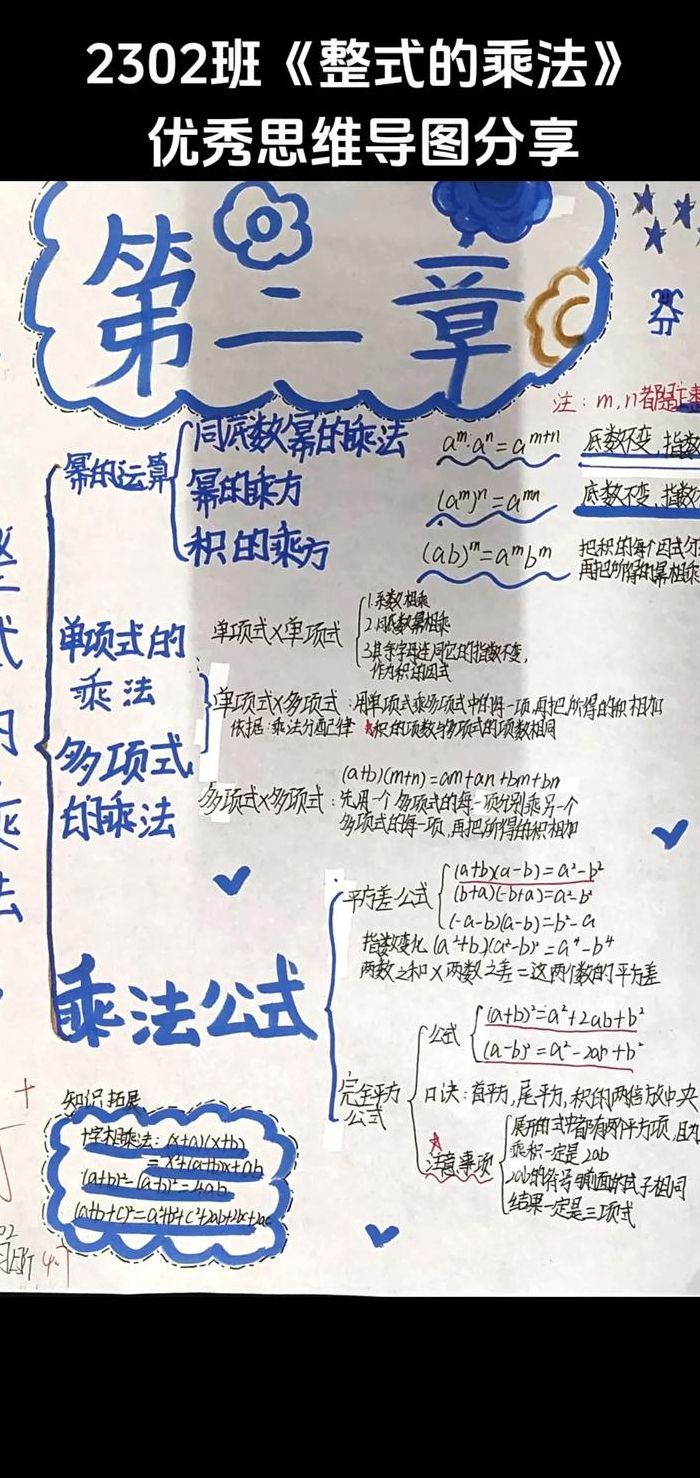 2302班《整式的乘法》
优秀思维导图分享
第二章
注：m,n都是正
幂的运算
同底数幂的乘法 aᵐ·aⁿ=aᵐ⁺ⁿ 底数不变,指数
幂的乘方 (aᵐ)ⁿ=aᵐⁿ 底数不变,指数
积的乘方 (ab)ᵐ=aᵐbᵐ 把积的每个因式分
再把所得的幂相乘
单项式的
乘法
单项式×单项式
1.系数相乘
2.同底数幂相乘
3.其余字母连同它的指数不变,
作为积的因式
单项式×多项式：用单项式乘多项式中的每一项,再把所得的积相加
依据:乘法分配律 ★积的项数与多项式的项数相同
多项式
的乘法
(a+b)(m+n)=am+an+bm+bn
多项式×多项式：先用一个多项式的每一项分别乘另一个
多项式的每一项,再把所得的积相加
乘法公式
平方差公式
(a+b)(a-b)=a²-b²
(b+a)(-b+a)=a²-b²
(-a-b)(a-b)=b²-a
指数变化 (a²+b²)(a²-b²)=a⁴-b⁴
两数之和×两数之差=这两个数的平方差
完全平方
公式
公式
(a+b)²=a²+2ab+b²
(a-b)²=a²-2ab+b²
口诀：首平方,尾平方,积的两倍放中央
★
注意事项
展开的式中都有两个平方项,且
乘积一定是2ab
2ab的符号与前面的式子相同
结果一定是三项式
知识拓展
十字相乘法：(x+a)(x+b)
=x²+(a+b)x+ab
(a+b)²-(a-b)²=4ab
(a+b+c)²=a²+b²+c²+2ab+2bc+2ac